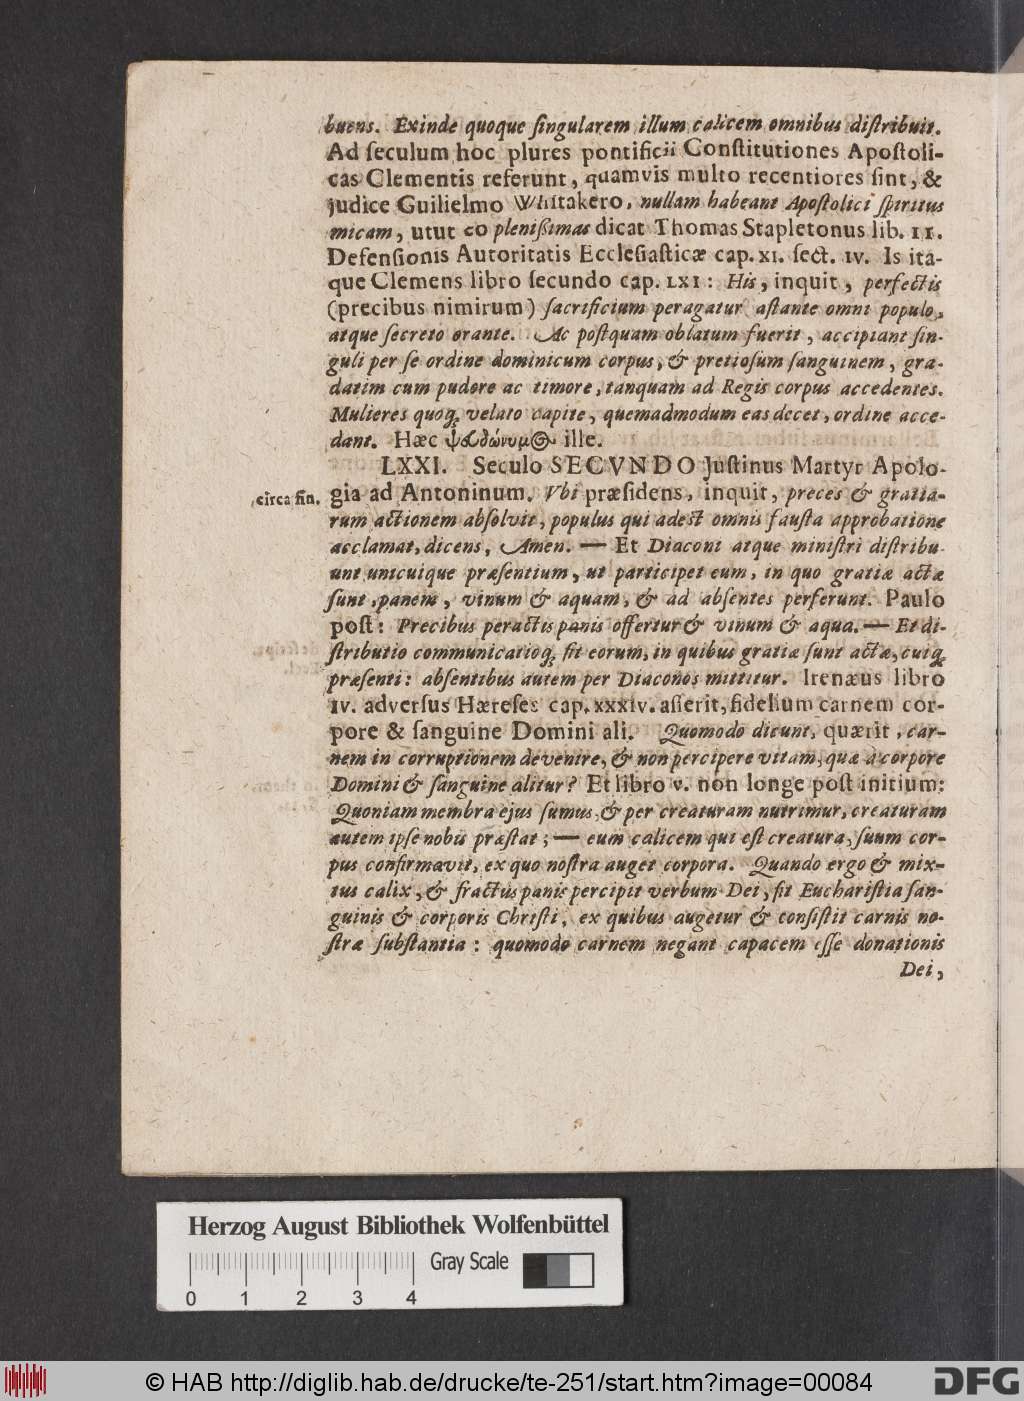 buens. Exinde quoque ſingularem illum calicem omnibus diſtribuit.
Ad ſeculum hoc plures pontificii Conſtitutiones Apoſtoli-
cas Clementis referunt, quamvis multo recentiores ſint, &
judice Guilielmo Whitakero, nullam habeant Apoſtolici ſpiritus
micam, utut eo pleniſsimas dicat Thomas Stapletonus lib. II.
Defenſionis Autoritatis Eccleſiaſticæ cap. XI. ſect. IV. Is ita-
que Clemens libro ſecundo cap. LXI: His, inquit, perfectis
(precibus nimirum) ſacrificium peragatur aſtante omni populo,
atque ſecreto orante. Ac poſtquam oblatum fuerit, accipiant ſin-
guli per ſe ordine dominicum corpus, & pretioſum ſanguinem, gra-
datim cum pudore ac timore, tanquam ad Regis corpus accedentes.
Mulieres quoq́;, velato capite, quemadmodum eas decet, ordine acce-
dant. Hæc ψευδώνυμος ille.
LXXI. Seculo SECVNDO Juſtinus Martyr Apolo-
circa fin. gia ad Antoninum. Vbi præſidens, inquit, preces & gratia-
rum actionem abſolvit, populus qui adeſt omnis fauſta approbatione
acclamat, dicens, Amen. — Et Diaconi atque miniſtri diſtribu-
unt unicuique præſentium, ut participet eum, in quo gratiæ actæ
ſunt, panem, vinum & aquam, & ad abſentes perferunt. Paulo
poſt: Precibus peractis panis offertur & vinum & aqua. — Et di-
ſtributio communicatioq́;, fit eorum, in quibus gratiæ ſunt actæ, cuiq́;
præſenti: abſentibus autem per Diaconos mittitur. Irenæus libro
IV. adverſus Hæreſes cap. XXXIV. aſſerit, fidelium carnem cor-
pore & ſanguine Domini ali. Quomodo dicunt, quærit, car-
nem in corruptionem devenire, & non percipere vitam, quæ à corpore
Domini & ſanguine alitur? Et libro V. non longe poſt initium:
Quoniam membra ejus ſumus, & per creaturam nutrimur, creaturam
autem ipſe nobis præſtat; — eum calicem qui eſt creatura, ſuum cor-
pus confirmavit, ex quo noſtra auget corpora. Quando ergo & mix-
tus calix, & fractus panis percipit verbum Dei, fit Euchariſtia ſan-
guinis & corporis Chriſti, ex quibus augetur & conſiſtit carnis no-
ſtræ ſubſtantia: quomodo carnem negant capacem eſſe donationis
Dei,
Herzog August Bibliothek Wolfenbüttel
Gray Scale
0 1 2 3 4
© HAB http://diglib.hab.de/drucke/te-251/start.htm?image=00084
DFG